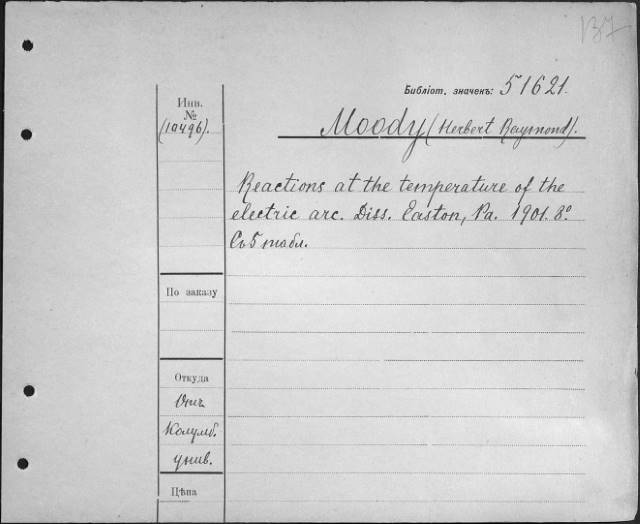 137
Библіот. значенъ: 51621.
Инв.
№
(10496).
Moody (Herbert Raymond).
Reactions at the temperature of the
electric arc. Diss. Easton, Pa. 1901. 8°.
Съ 5 табл.
По заказу
Откуда
Отъ
Колумб.
унив.
Цѣна